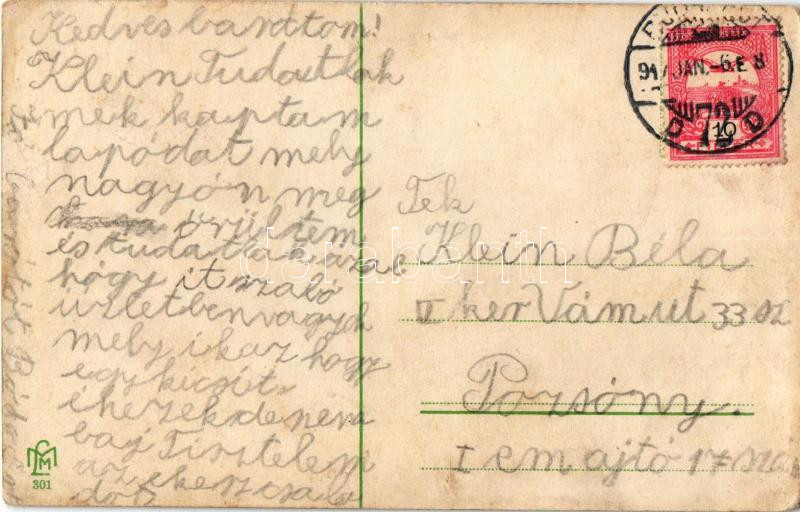 Kedves barátom!
Klein Tudatlak
mek kaptam
lapódat mely
nagyón meg
örültem
és tudatlak azal
hógy it szabó
üzletben vagyok
mely igaz hogy
egy kicsit
éhezek de nem
baj Tisztelem
az ékes csalá
dot
Tek
Klein Béla
II ker Vámut 33 sz
Pozsóny.
I em ajtó 17 szá
917 JAN. -6. E 8
72
10
D
LM
301
darabanth